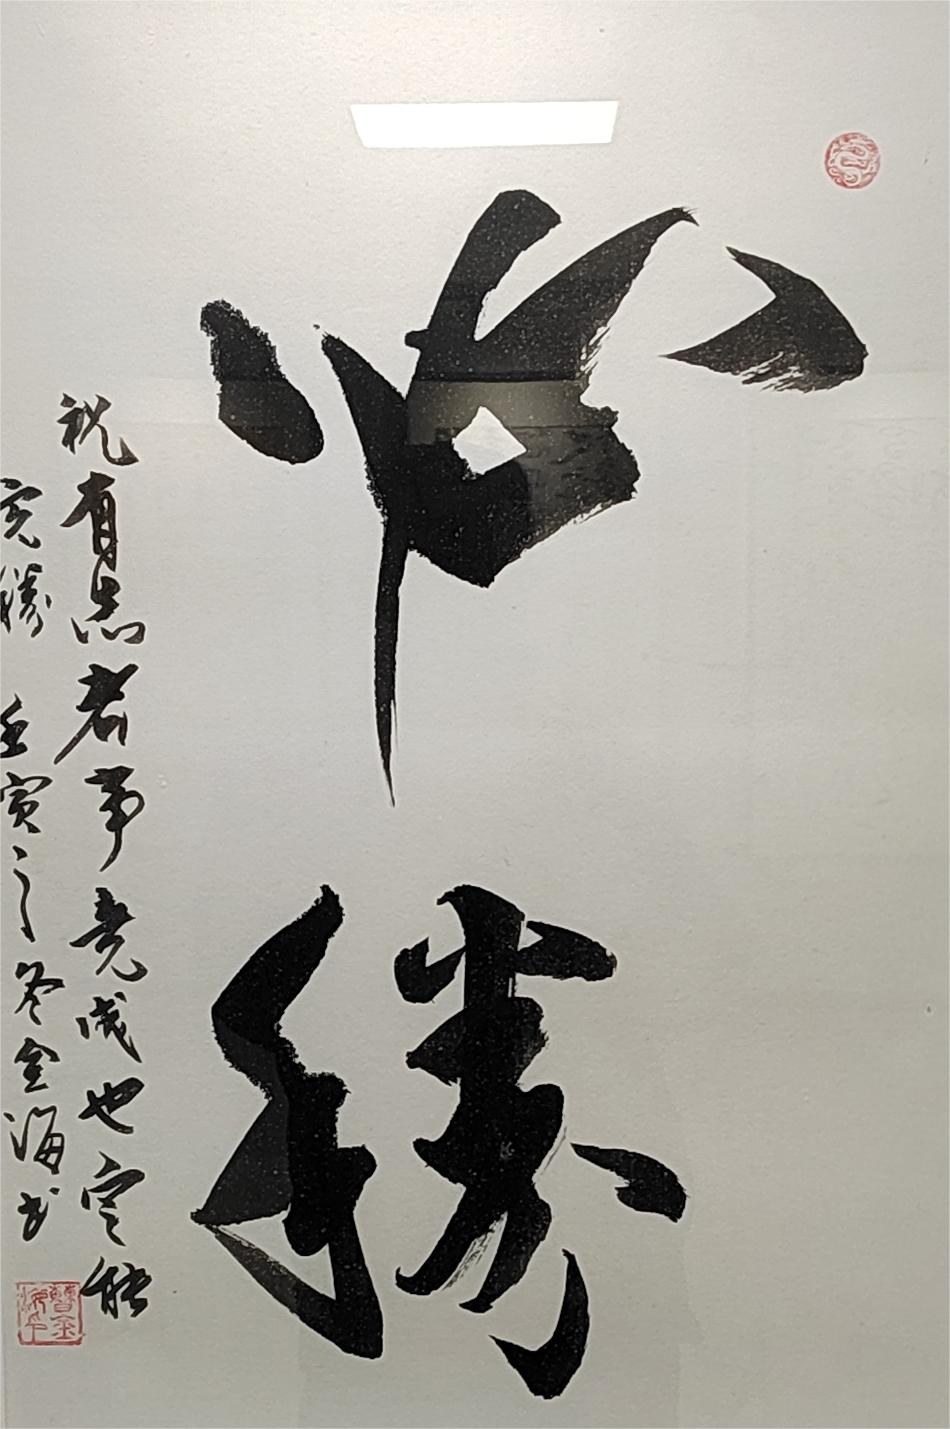 必
勝
祝有志者事竟成也定能
完勝 壬寅之冬金海书
曹金海印